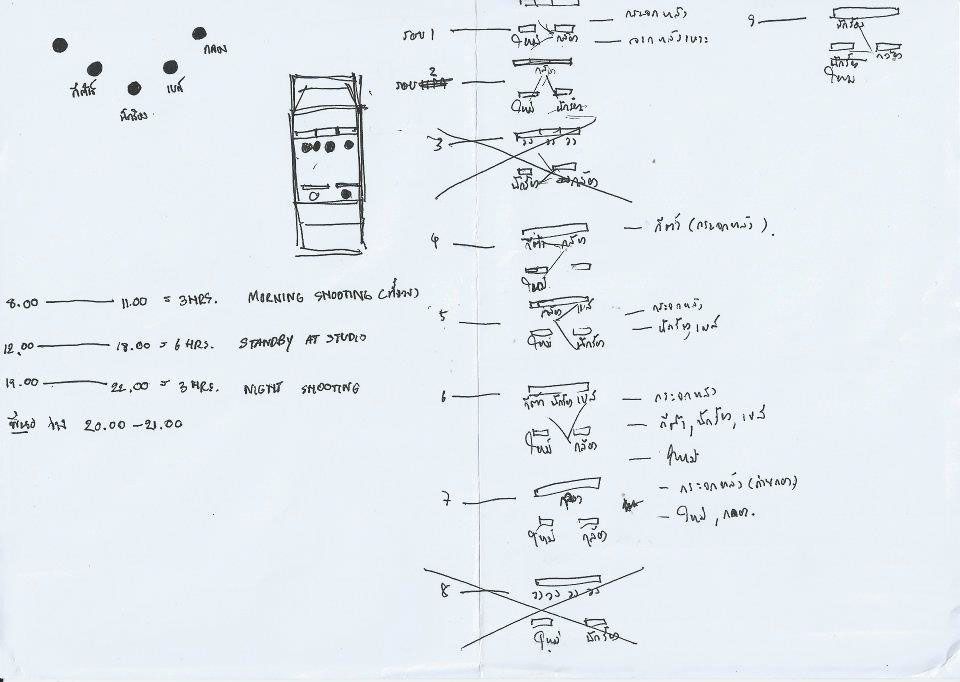 กลอง
กีต้าร์
เบส
นักร้อง
8.00 11.00 = 3HRS. MORNING SHOOTING
12.00 18.00 = 6 HRS. STANDBY AT STUDIO
19.00 22.00 = 3 HRS. NIGHT SHOOTING
20.00 - 21.00
รอบ 1
ใหม่ กล้อง
กระจกหลัง
รอบ 2
กล้อง
ใหม่ นักร้อง
3
วง วง วง
นักร้อง กล้อง
4
กีตาร์ กล้อง
ใหม่
กีตาร์ (กระจกหลัง).
5
กล้อง เบส
ใหม่ นักร้อง
กระจกหลัง
นักร้อง, เบส
6
กีตาร์ นักร้อง เบส
ใหม่ กล้อง
กระจกหลัง
กีตาร์, นักร้อง, เบส
ใหม่
7
กลอง
ใหม่ กล้อง
กระจกหลัง
ใหม่, กลอง.
8
วง วง วง วง
ใหม่ นักร้อง
9
นักร้อง
นักร้อง กล้อง
ใหม่